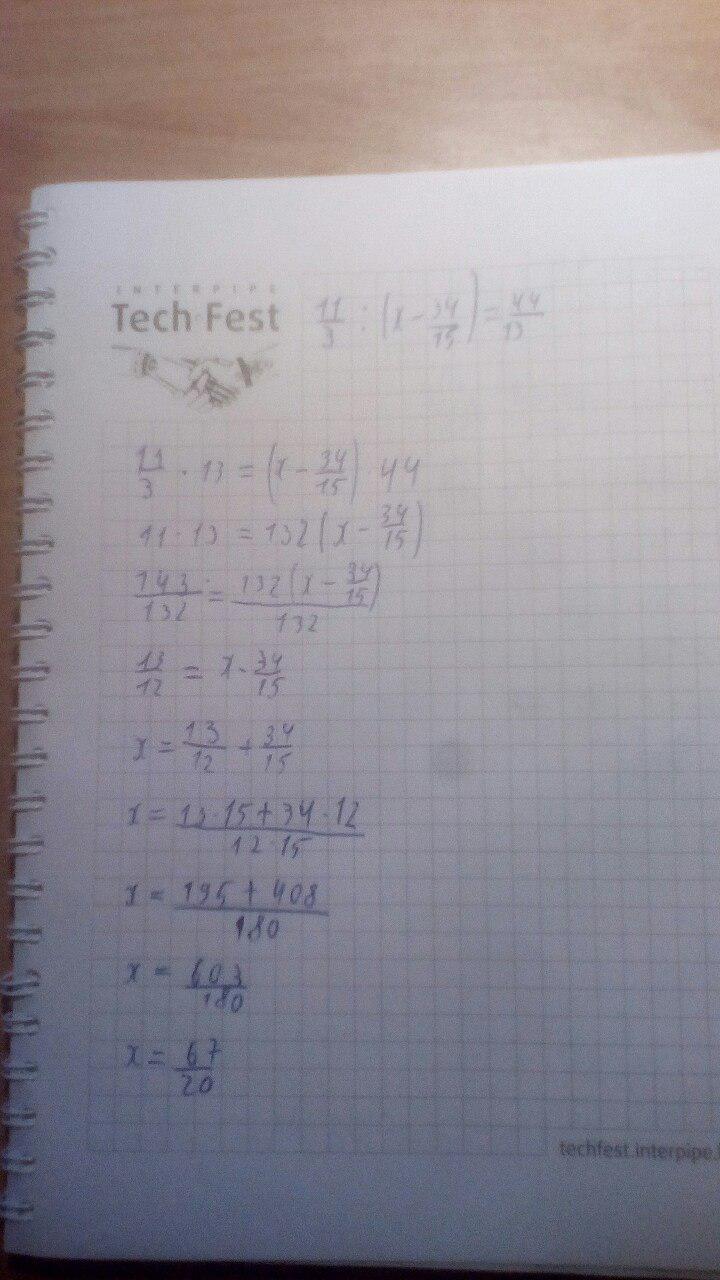 INTERPIPE
Tech Fest
11/3 : (x - 34/15) = 44/13
11/3 · 13 = (x - 34/15) 44
11 · 13 = 132 (x - 34/15)
143/132 = 132 (x - 34/15)/132
13/12 = x - 34/15
x = 13/12 + 34/15
x = 13·15+34·12/12·15
x = 195 + 408/180
x = 603/180
x = 67/20
techfest.interpipe.